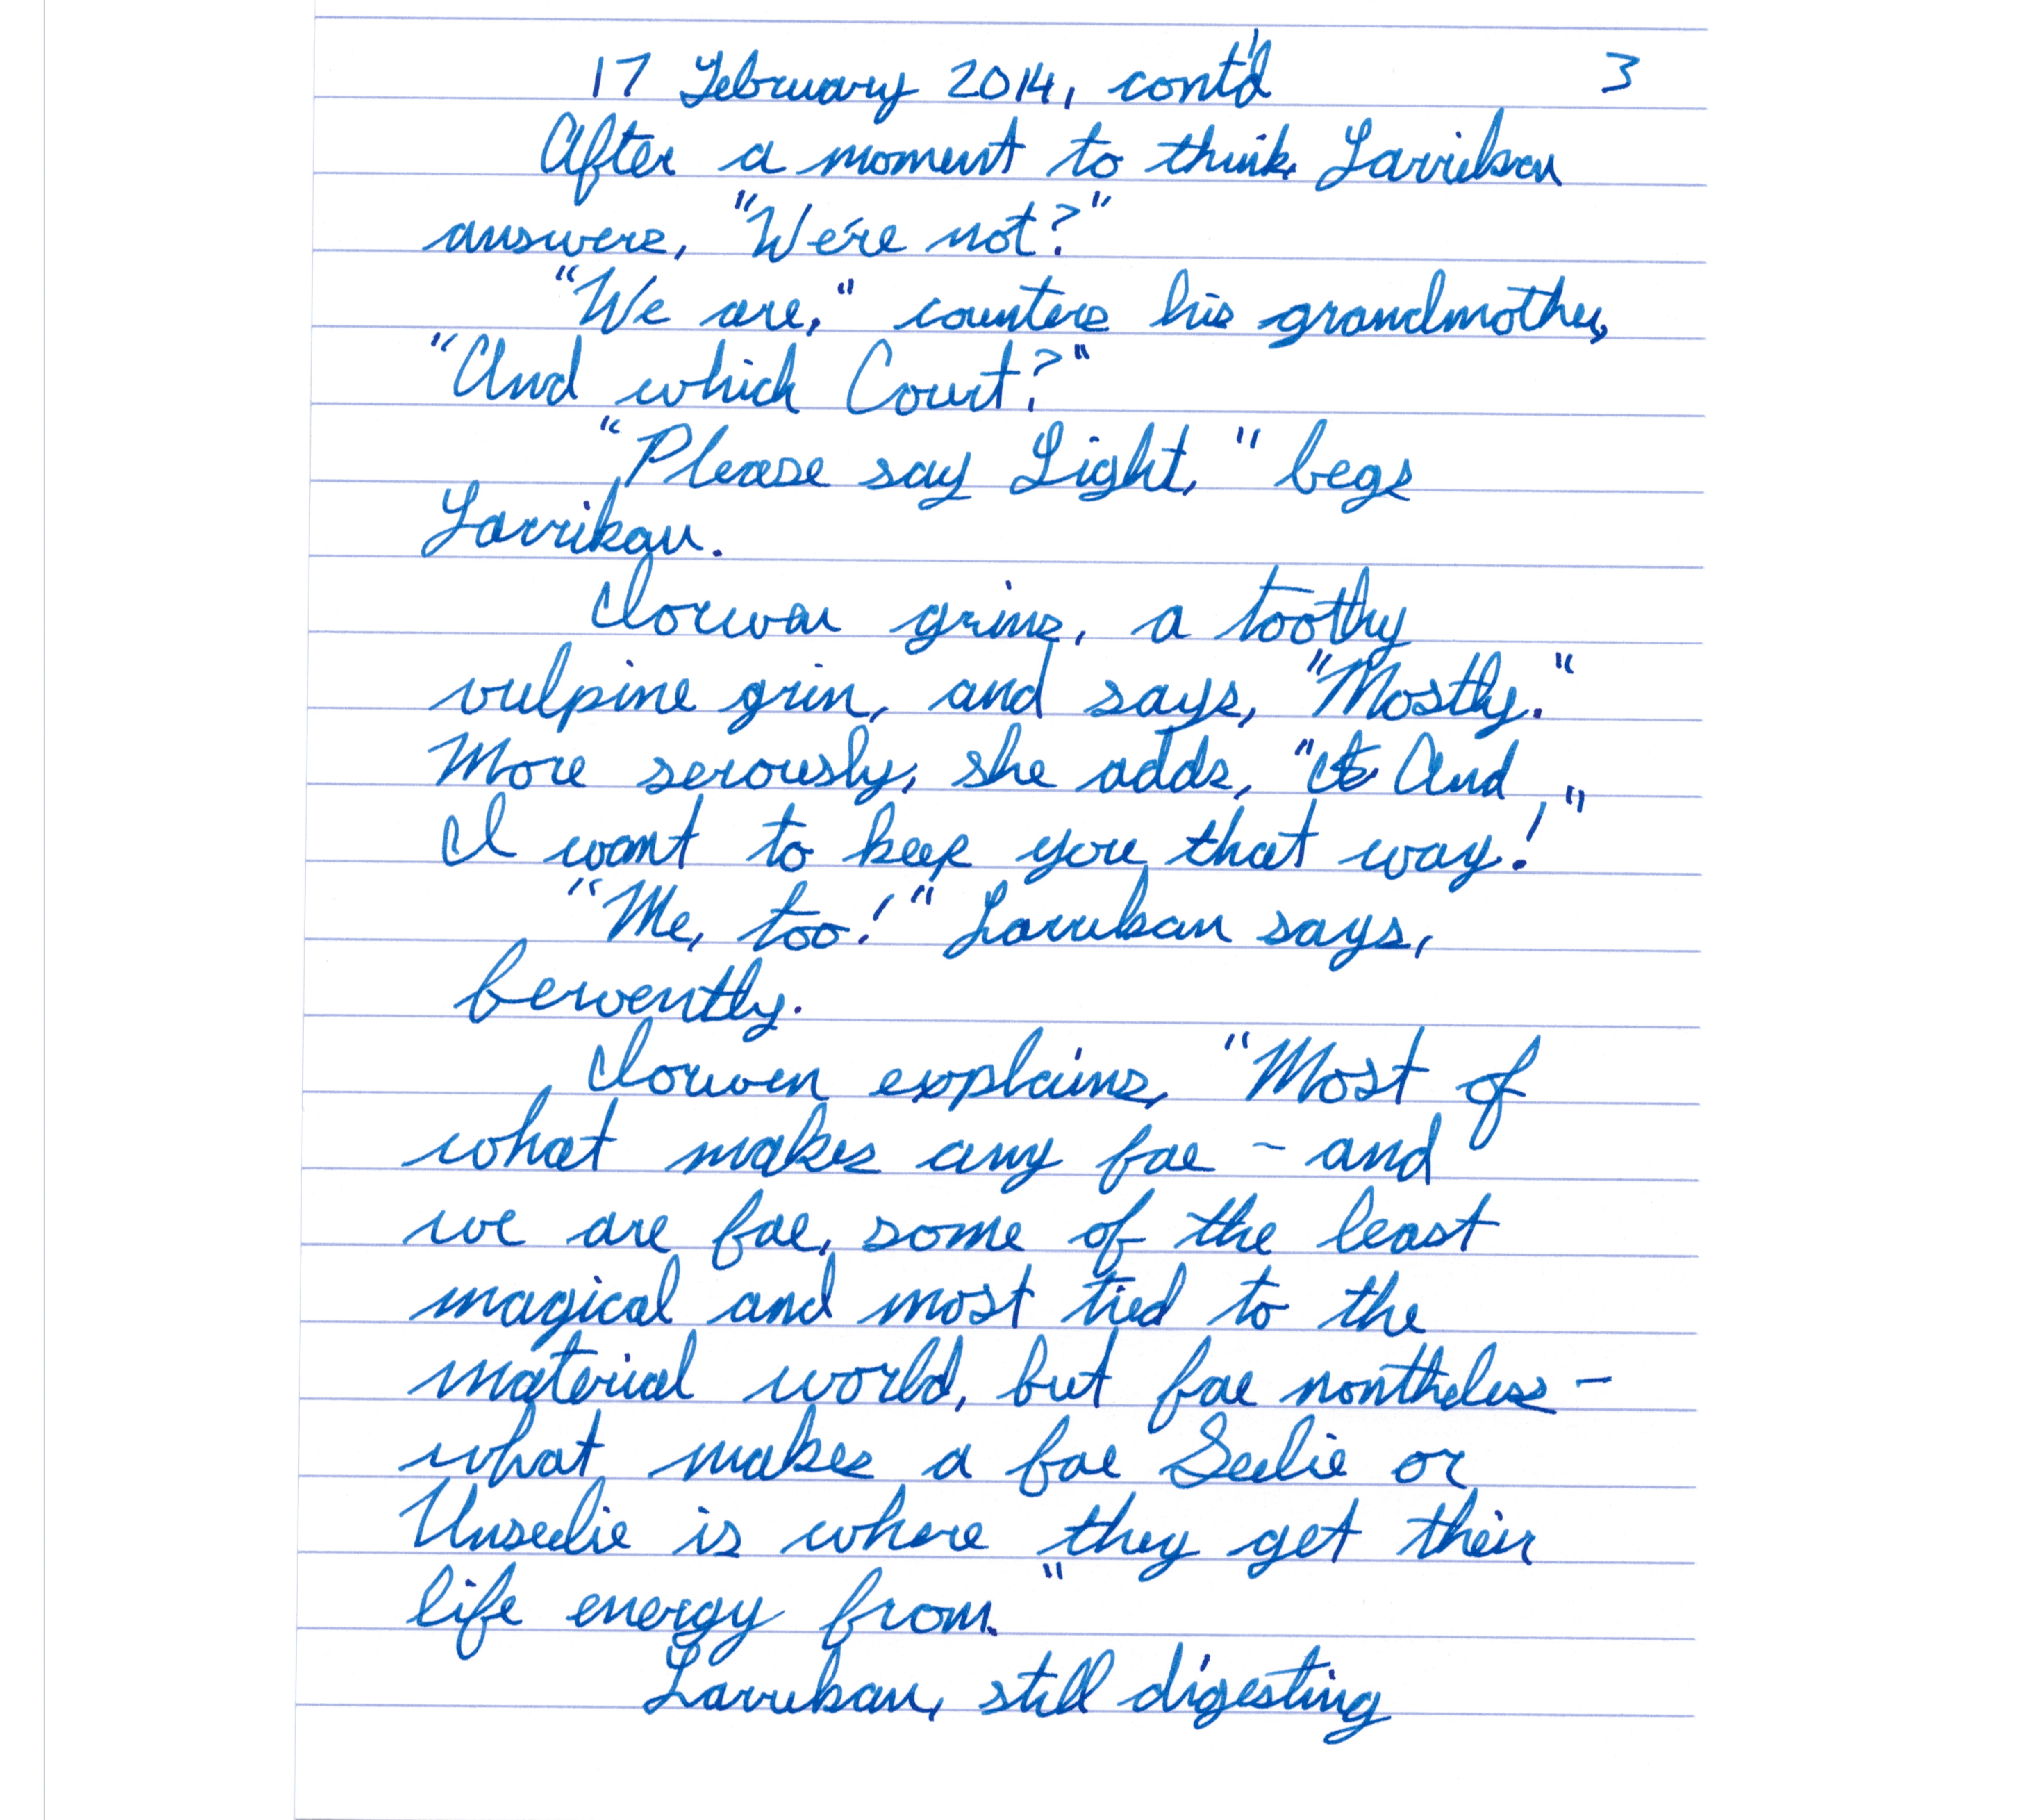 17 February 2014, cont'd 3
After a moment to think, Larrikan
answers, "We're not?"
"We are," counters his grandmother,
"And which Court?"
"Please say Light," begs
Larrikan.
Iorwen grins, a toothy
vulpine grin, and says, "Mostly."
More serously, she adds, "And
I want to keep you that way!"
"Me, too!" Larrikan says,
fervently.
Iorwen explains, "Most of
what makes any fae - and
we are fae, some of the least
magical and most tied to the
material world, but fae nontheless -
what makes a fae Seelie or
Unseelie is where they get their
life energy from."
Larrikan, still digesting